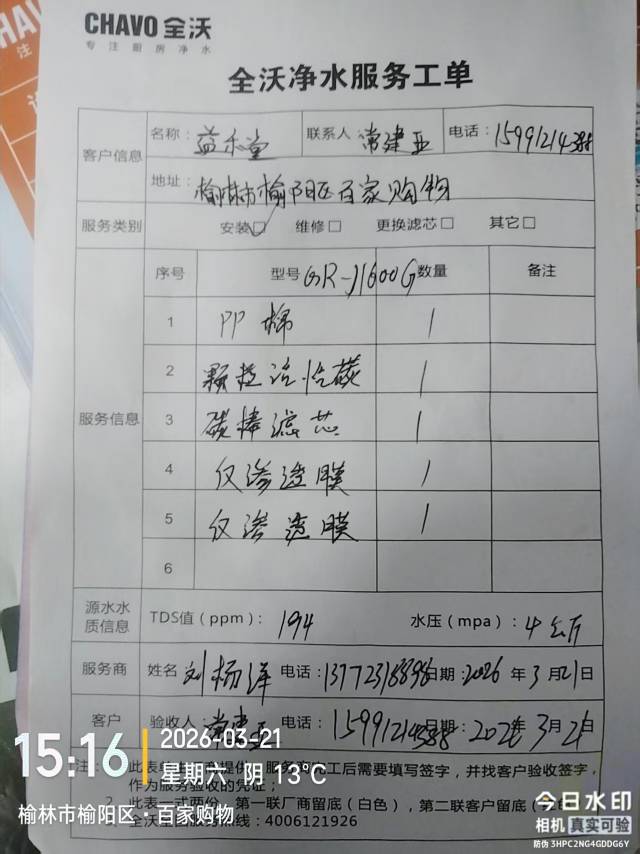 CHAVO 全沃
专注厨房净水
全沃净水服务工单
客户信息
名称: 益禾堂 联系人 常建亚 电话: 15991214388
地址: 榆林市榆阳区百家购物
服务类别 安装☑ 维修☐ 更换滤芯☐ 其它☐
服务信息
序号 型号 GR-J1600G 数量 备注
1 PP棉 1
2 颗粒活性碳 1
3 碳棒滤芯 1
4 仅渗透膜 1
5 仅渗透膜 1
6
源水水质信息 TDS值(ppm): 194 水压(mpa): 4公斤
服务商 姓名 刘杨洋 电话: 日期: 2026年3月21日
客户 验收人: 常建亚 电话: 15991214388 日期: 2026年3月21日
15.16
2026-03-21
星期六 阴 13℃
榆林市榆阳区·百家购物
服务 工后需要填写签字,并找客户验收签字,
作为服务验收的凭证;
2、此表一式两份,第一联厂商留底(白色),第二联客户留底
全沃全国服务热线:4006121926
今日水印
相机 真实可验
防伪 3HPC2NG4GDDG6Y